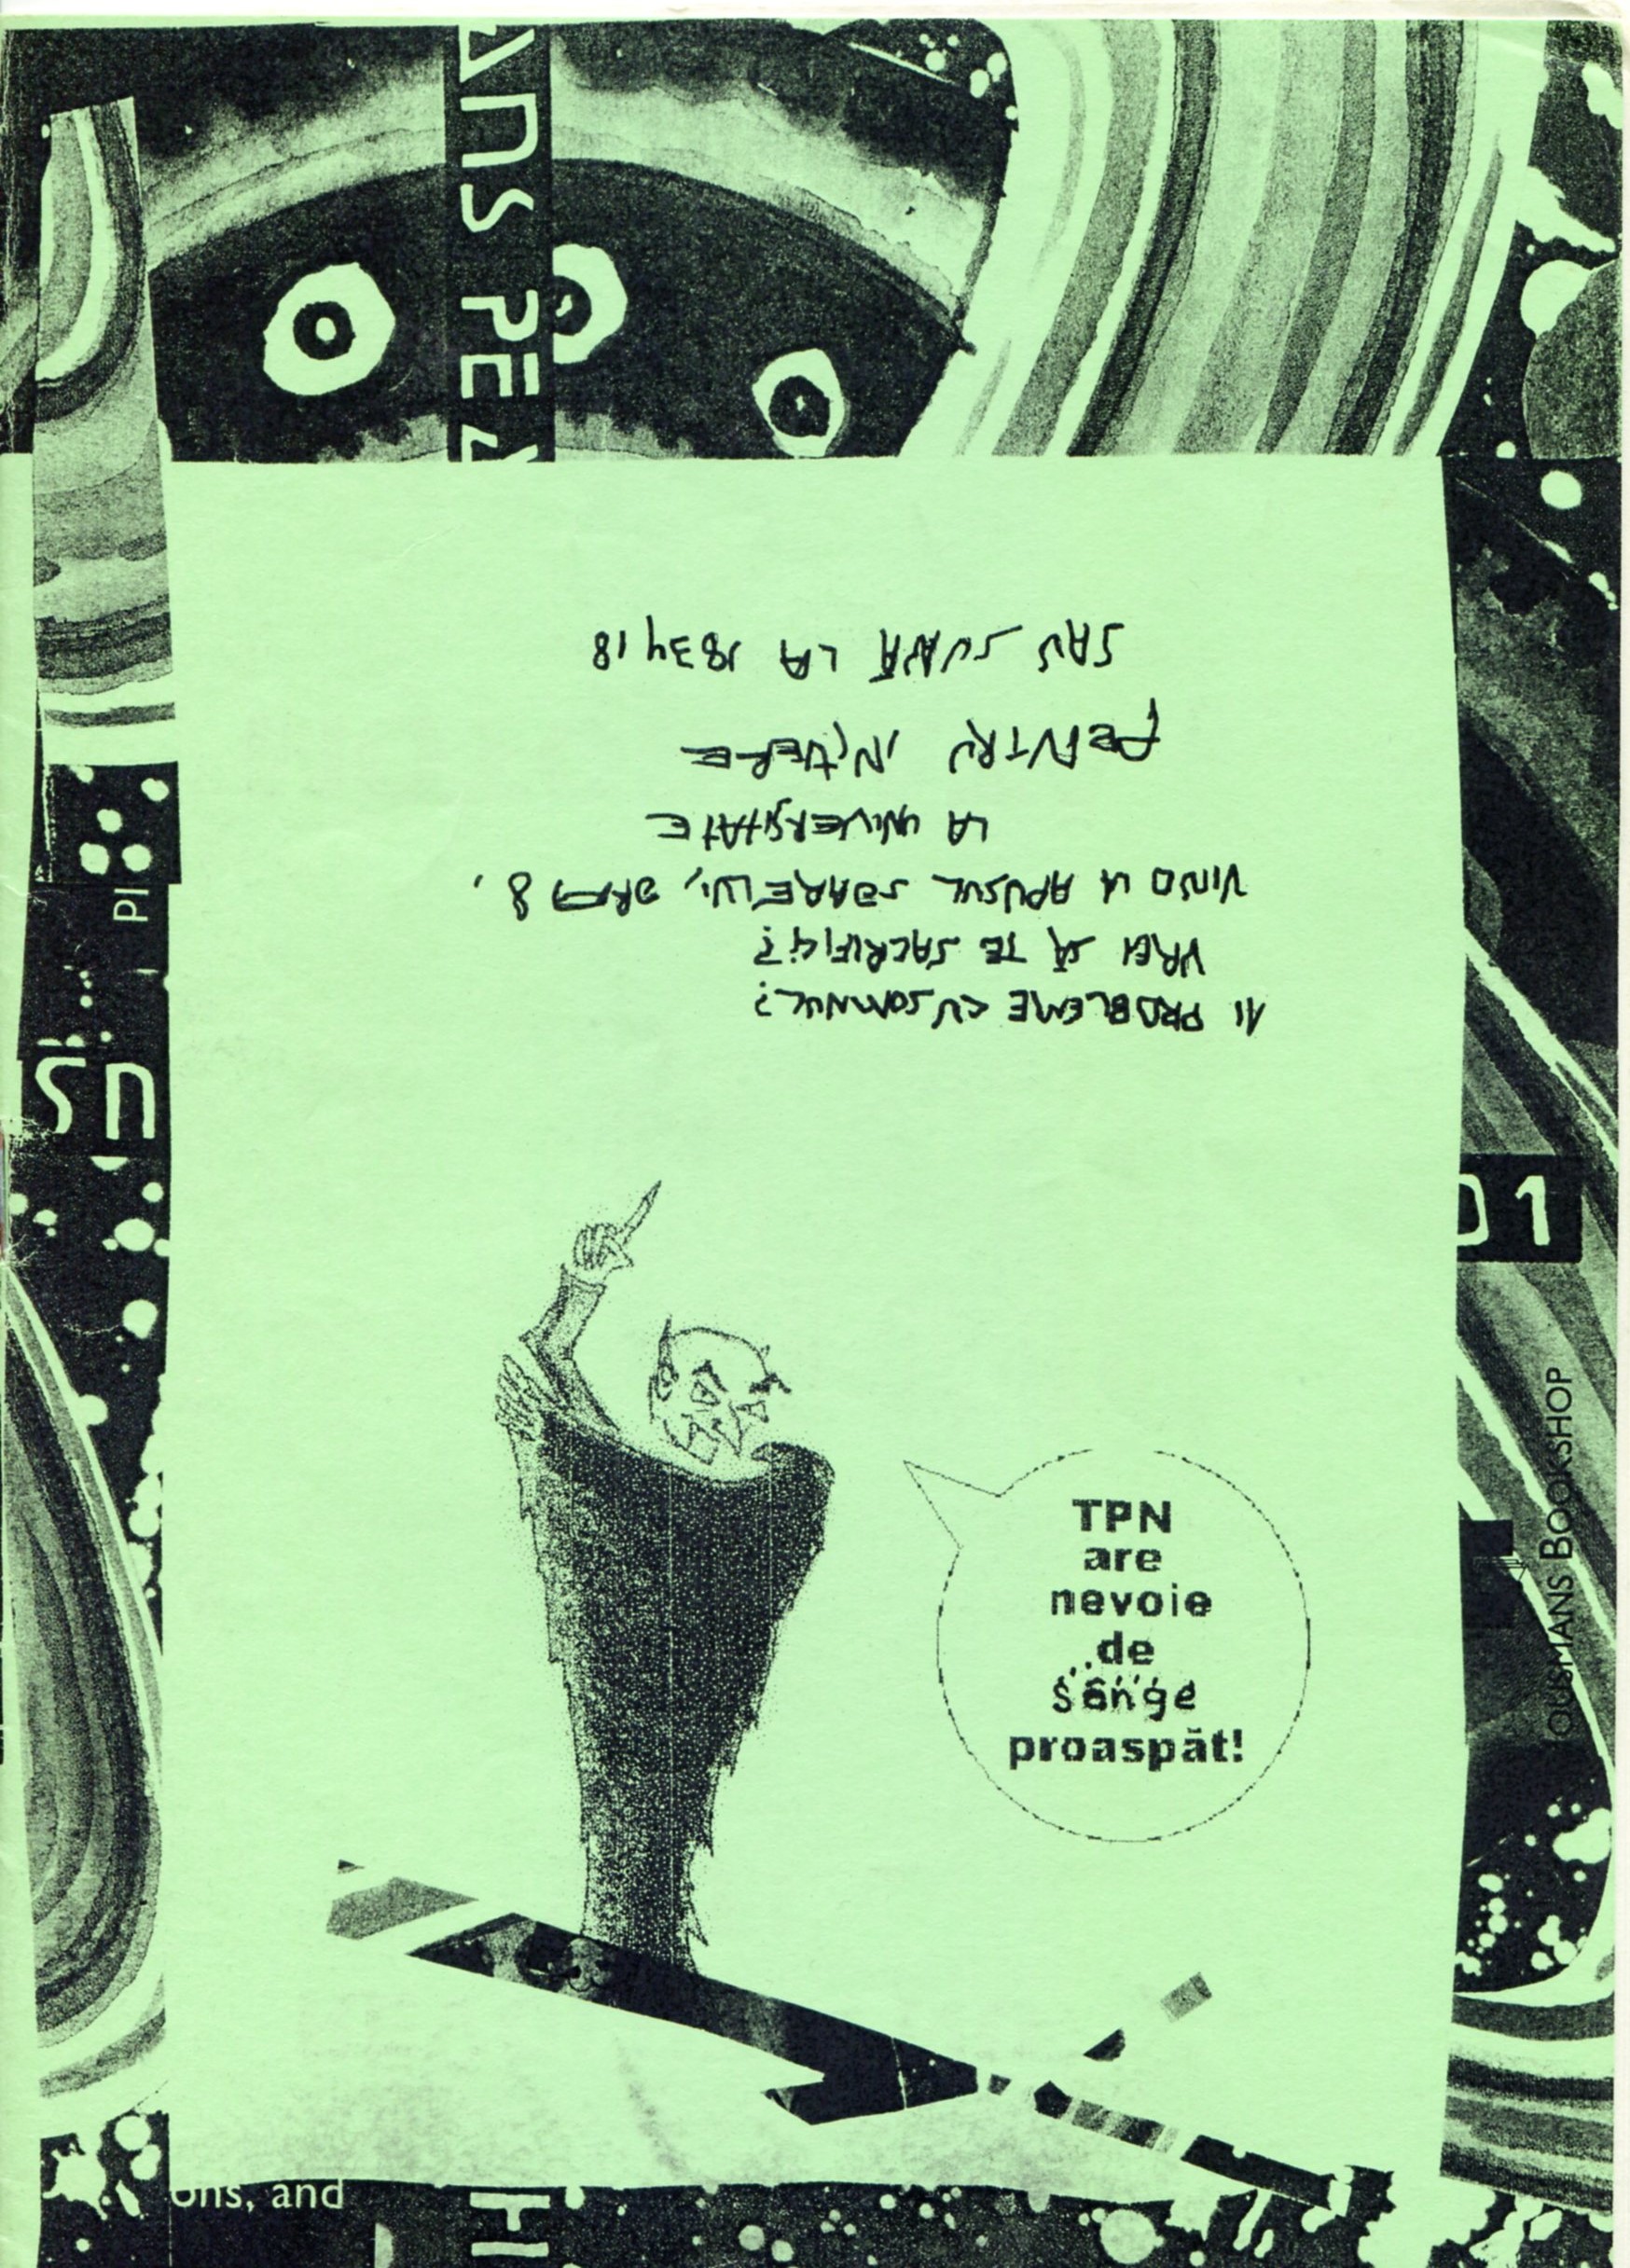 ANS PE
AI PROBLEME CU SOMNUL?
VREI SĂ TE SACRIFICI?
VINO LA APUSUL SOARELUI, ORA 8,
LA UNIVERSITATE
PENTRU INIȚIERE
SAU SUNĂ LA 183418
PI
01
TPN
are
nevoie
de
sânge
proaspăt!
OUSMANS BOOKSHOP
ons, and